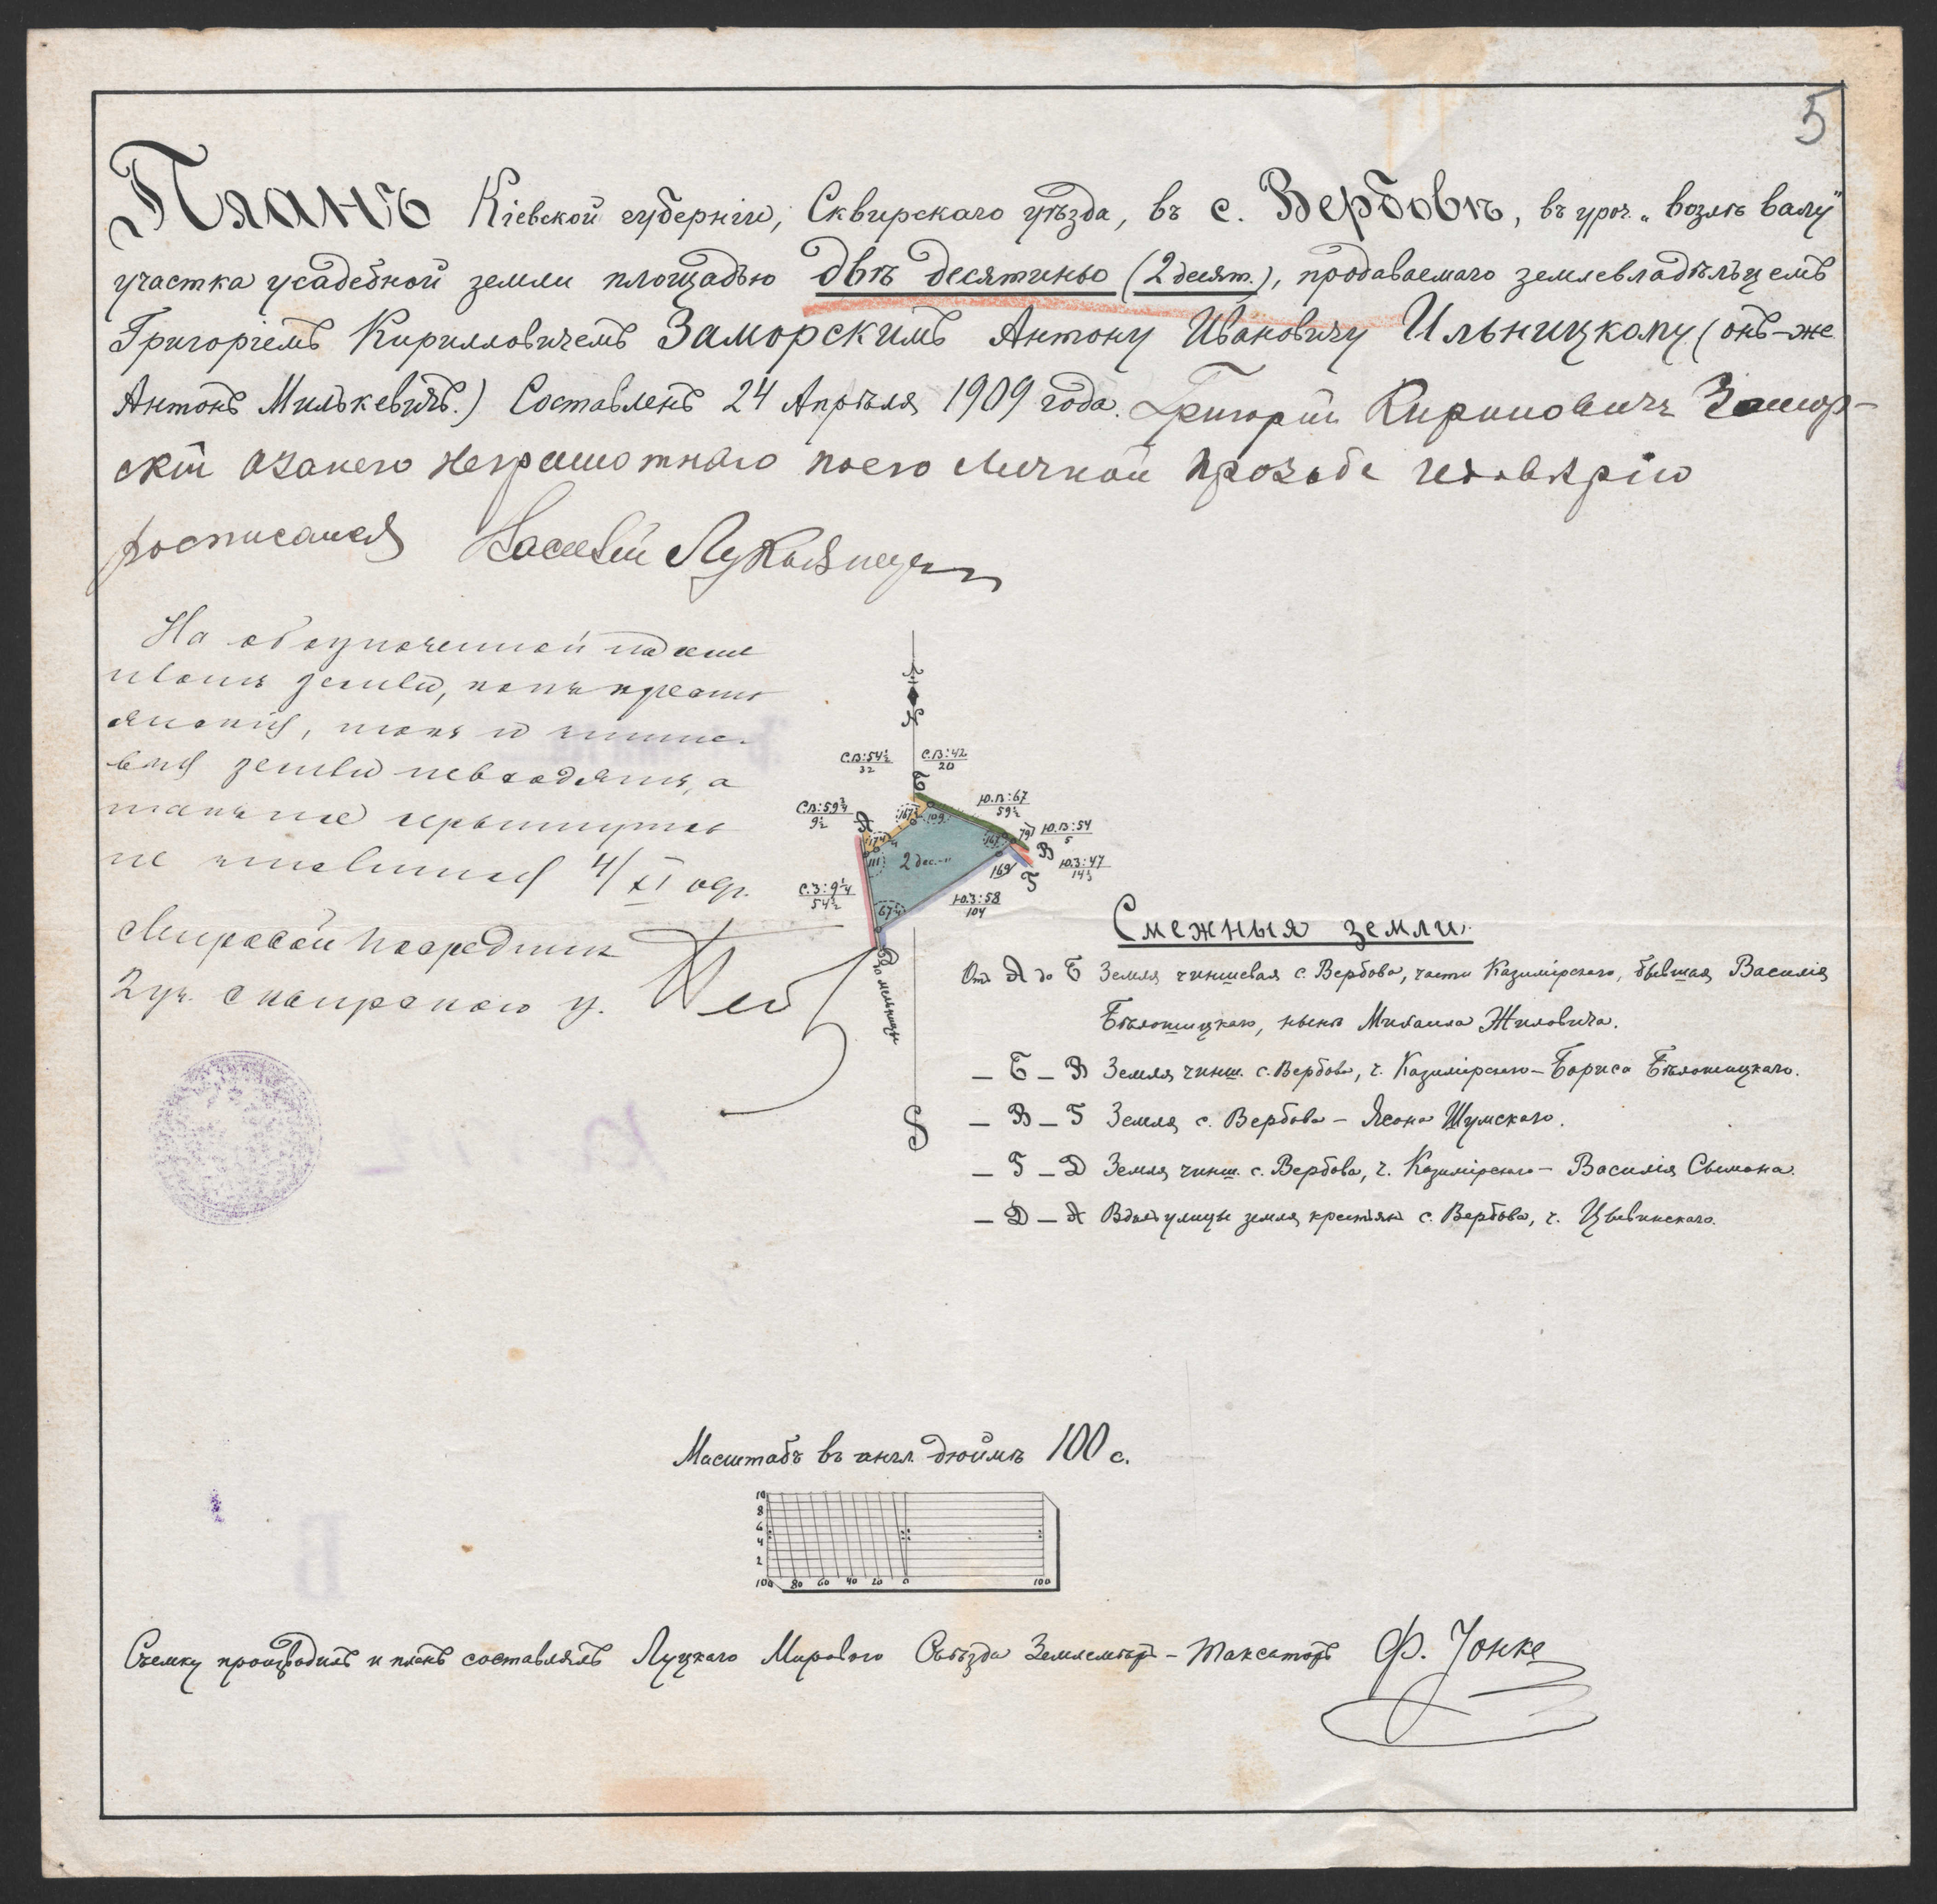 5
Планъ Кіевской губерніи, Сквирскаго уѣзда, въ с. Вербовѣ, въ уроч. „возлѣ валу"
участка усадебной земли площадью двѣ десятины (2 десят.), продаваемаго землевладѣльцемъ
Григоріемъ Кирилловичемъ Заморскимъ Антону Ивановичу Ильницкому (онъ-же
Антонъ Милькевичъ.) Составленъ 24 Апрѣля 1909 года. Григорій Кириловичъ Замор-
скій азанего неграмотнаго поего личной прозьбе
росписался Василій
На обозначенной
земли,
земли невходятъ, а
не 4/XI 09г.
Мировой Посредник
2 уч. Сквирскаго у.
N
С.В:54½
32
С.В:42
20
С.В:59¾
9½
Ю.В:67
59½
Ю.В:54
5
Ю.З:47
14½
Ю.З:58
104
С.З:9¼
54½
А
Б
В
Г
Д
109
111
169
67¼
2 дес.
до мельницы
S
Смежныя земли.
Отъ А до Б Земля чиншевая с. Вербова, части Казимірскаго, бывшая Василія
Бѣлошицкаго, нынѣ Михаила Жиловича.
— Б — В Земля чинш. с. Вербова, ч. Казимірскаго — Бориса Бѣлошицкаго.
— В — Г Земля с. Вербова — Ясона Шумскаго.
— Г — Д Земля чинш. с. Вербова, ч. Казимірскаго — Василія Сымона.
— Д — А Вдоль улицы земля крестьян с. Вербова, ч. Цывинскаго.
Масштабъ въ англ. дюймѣ 100 с.
10
8
6
4
2
100 80 60 40 20 0 100
Съемку производилъ и планъ составлялъ Луцкаго Мирового Съѣзда Землемѣръ-Таксаторъ Ф. Іонке